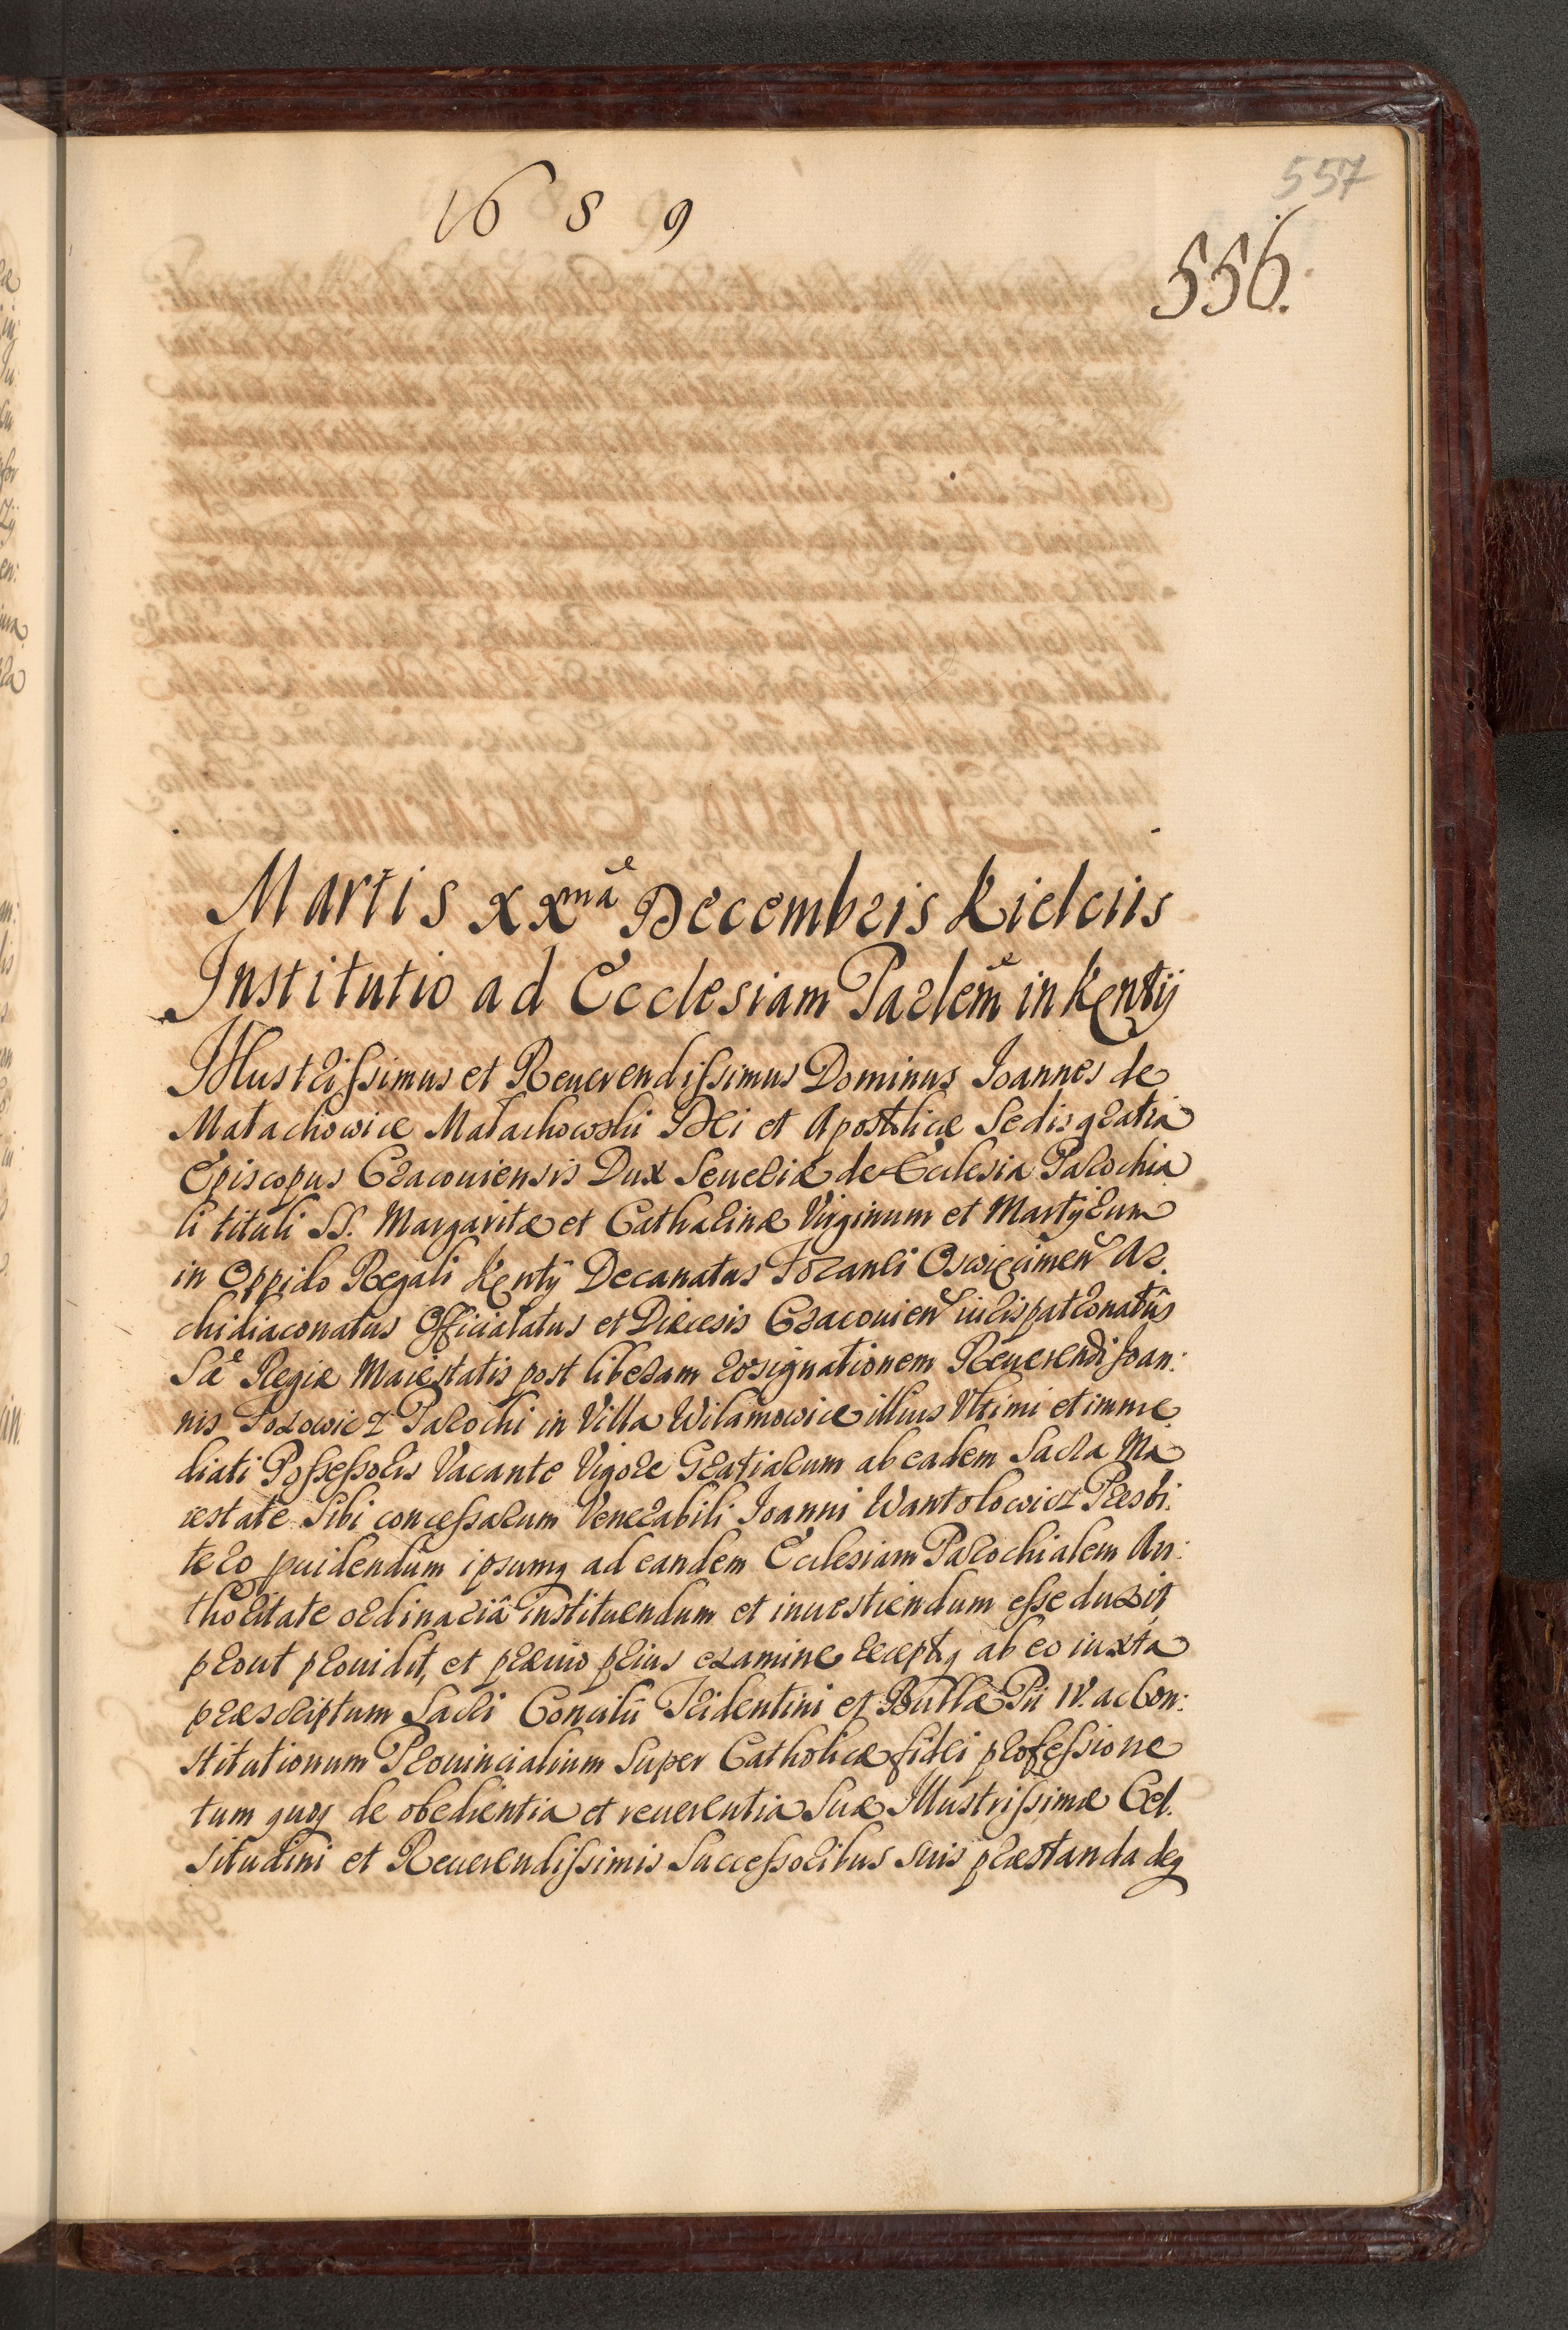 1689
557
556.
Martis xxmâ Decembris Kielciis
Institutio ad Ecclesiam Parlem in Kenty
Illustrissimus et Reuerendissimus Dominus Joannes de
Małachowice Małachowski Dei et Apostolicæ Sedis gratia
Episcopus Cracouiensis Dux Seueriæ de Ecclesia Parochia
li tituli SS. Margaritæ et Catharinæ Virginum et Martyrum
in Oppido Regali Kenty Decanatus Foranei Oswięcimen Ar.
chidiaconatus Officialatus et Diæcesis Cracouien iuris patronatûs
Sæ Regiæ Maiestatis post liberam resignationem Reuerendi Joan:
nis Parochi in Villa Wilamowice illius Vltimi et imme
diati Possessoris Vacante Vigore Gratiarum ab eadem Sacra Ma
iestate Sibi concessarum Venerabili Joanni Wantolowicz Presbi.
tero puidendum ipsumq ad eandem Ecclesiam Parochialem Au:
thoritate ordinariâ instituendum et inuestiendum esse duxit,
prout prouidit, et præuio prius examine receptq ab eo iuxta
præscriptum Sacri Concilii Tridentini et Bullæ Pii IV. ac Con:
stitutionum Prouincialium Super Catholicæ fidei professione
tum quoq de obedientia et reuerentia Suæ Illustrissimæ Cel.
situdini et Reuerendissimis Successoribus suis præstanda deq